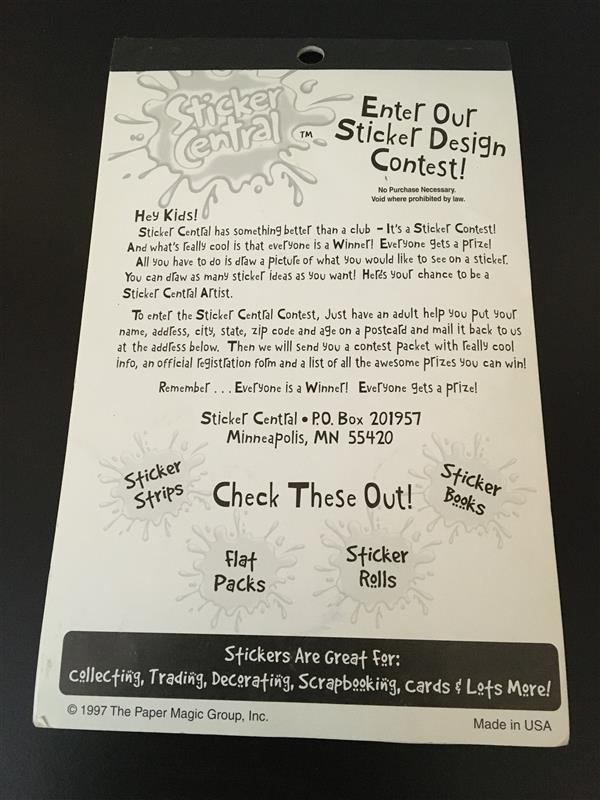 Sticker
Central ™
Enter Our
Sticker Design
Contest!
No Purchase Necessary.
Void where prohibited by law.
Hey Kids!
Sticker Central has something better than a club – It's a Sticker Contest!
And what's really cool is that everyone is a Winner! Everyone gets a prize!
All you have to do is draw a picture of what you would like to see on a sticker.
You can draw as many sticker ideas as you want! Here's your chance to be a
Sticker Central Artist.
To enter the Sticker Central Contest, Just have an adult help you put your
name, address, city, state, zip code and age on a postcard and mail it back to us
at the address below. Then we will send you a contest packet with really cool
info, an official registration form and a list of all the awesome prizes you can win!
Remember . . . Everyone is a Winner! Everyone gets a prize!
Sticker Central • P.O. Box 201957
Minneapolis, MN 55420
Sticker
Strips
Check These Out!
Sticker
Books
Flat
Packs
Sticker
Rolls
Stickers Are Great For:
Collecting, Trading, Decorating, Scrapbooking, Cards & Lots More!
© 1997 The Paper Magic Group, Inc.
Made in USA